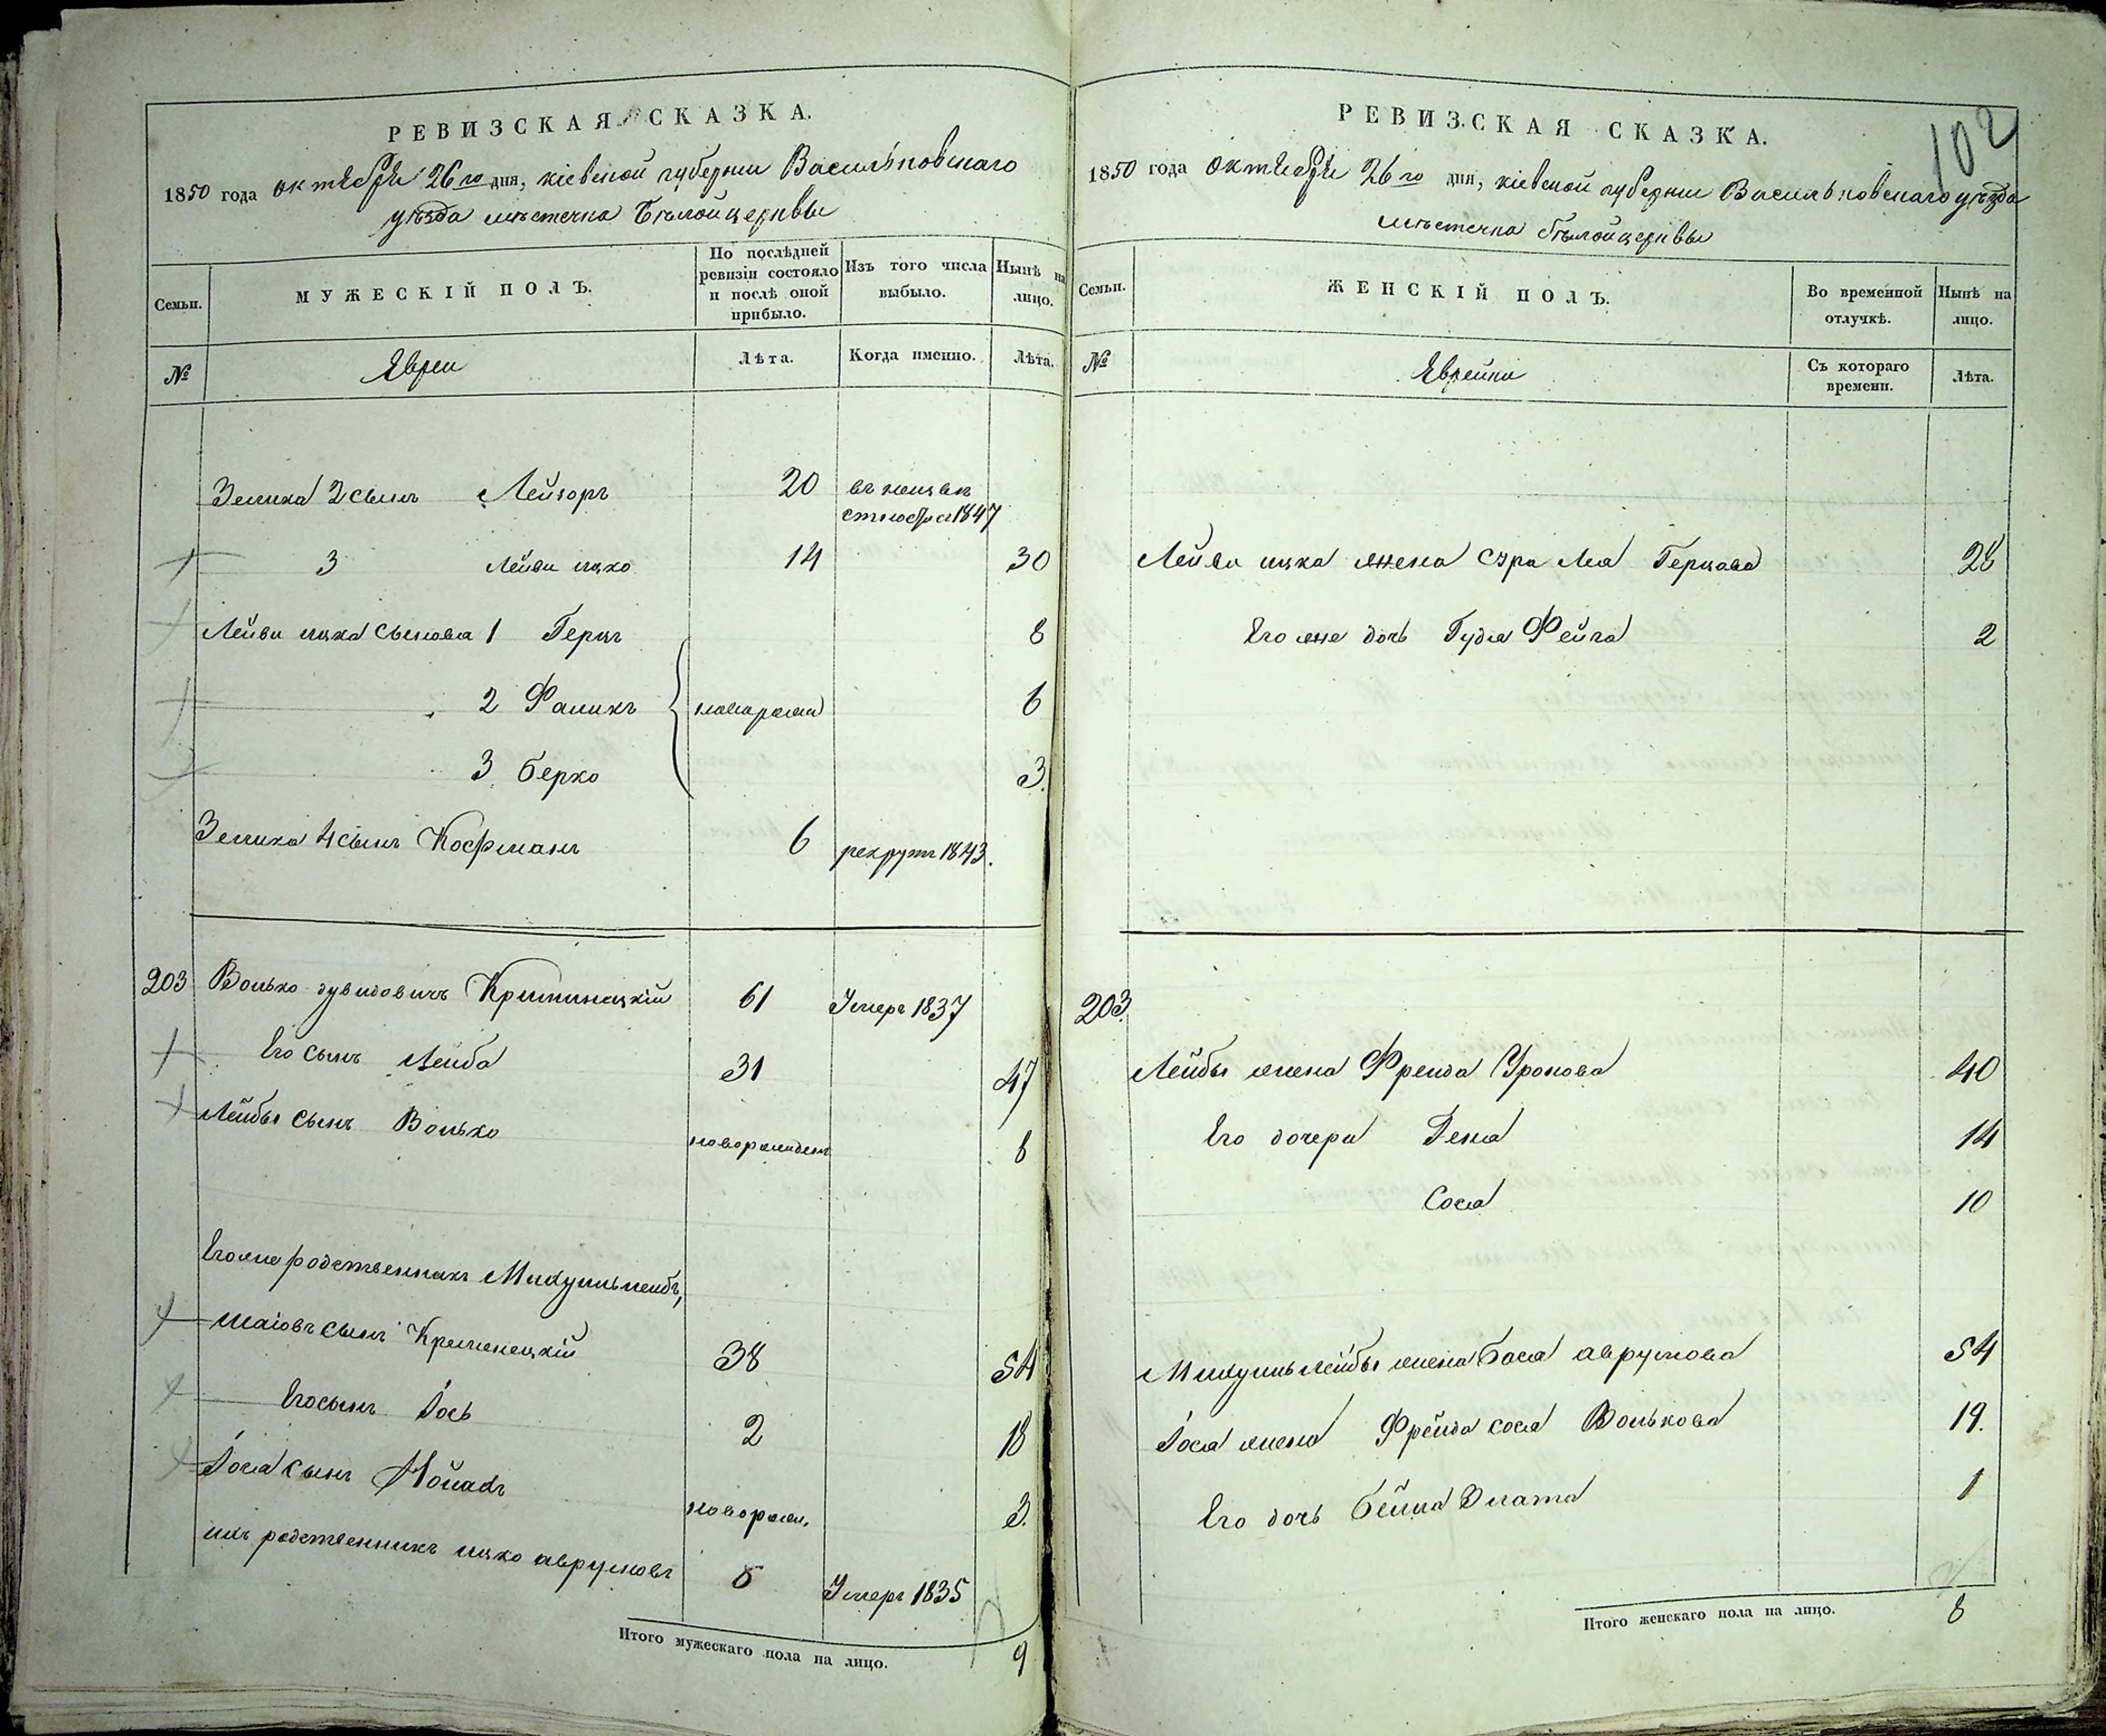 РЕВИЗСКАЯ СКАЗКА.
1850 года октября 26го дня, кіевской губерніи Васильковскаго
уѣзда мѣстечка Бѣлойцеркви
Семьи.
МУЖЕСКІЙ ПОЛЪ.
По послѣдней ревизіи состояло и послѣ оной прибыло.
Изъ того числа выбыло.
Нынѣ на лицо.
№
Евреи
Лѣта.
Когда именно.
Лѣта.
Зелика 2 сынъ Лейзоръ 20 въ неизвѣ
стност 1847
3 Лейви ицко 14 30
Лейви ицка сыновья 1 Герцъ 8
2 Фаликъ новорожд 6
3 Берко 3.
Зелика 4 сынъ Кофманъ 6 рекрутъ 1843.
203 Волько дувидовичъ Креминецкій 61 Умеръ 1837
Его сынъ Лейба 31 47
Лейбы сынъ Волько новорожден 8
Егоже родственникъ Микушьлейбъ,
шаіовъ сынъ Кременецкій 38 54
Его сынъ Іось 2 18
Іося сынъ Мойсей новорож. 3.
ихъ родственникъ ицко аврумовъ 5 Умеръ 1835
Итого мужескаго пола на лицо. 9
102
РЕВИЗСКАЯ СКАЗКА.
1850 года октября 26го дня, кіевской губерніи Васильковскаго уѣзда
мѣстечка бѣлойцеркви
Семьи.
ЖЕНСКІЙ ПОЛЪ.
Во временной отлучкѣ.
Нынѣ на лицо.
№
Еврейки
Съ котораго времени.
Лѣта.
Лейви ицка жена Сура Лея Герцова 28
Его же дочь Гудя Фейга 2
203.
Лейбы жена Фрейда Сроова 40
Его дочери Геня 14
Сося 10
Микушьлейбы жена Бася аврумова 54
Іося жена Фрейда сося Волькова 19.
Его дочь Бейла Злата 1
Итого женскаго пола на лицо. 8